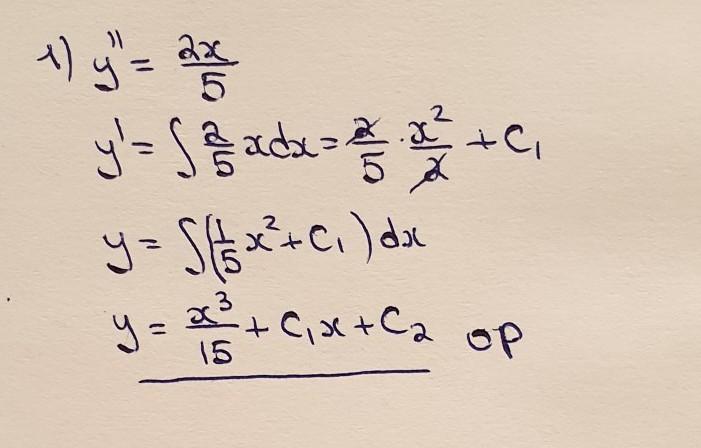 1) y'' = 2x/5
y' = ∫ 2/5 x dx = 2/5 · x²/2 + C₁
y = ∫(1/5 x² + C₁) dx
y = x³/15 + C₁x + C₂ op